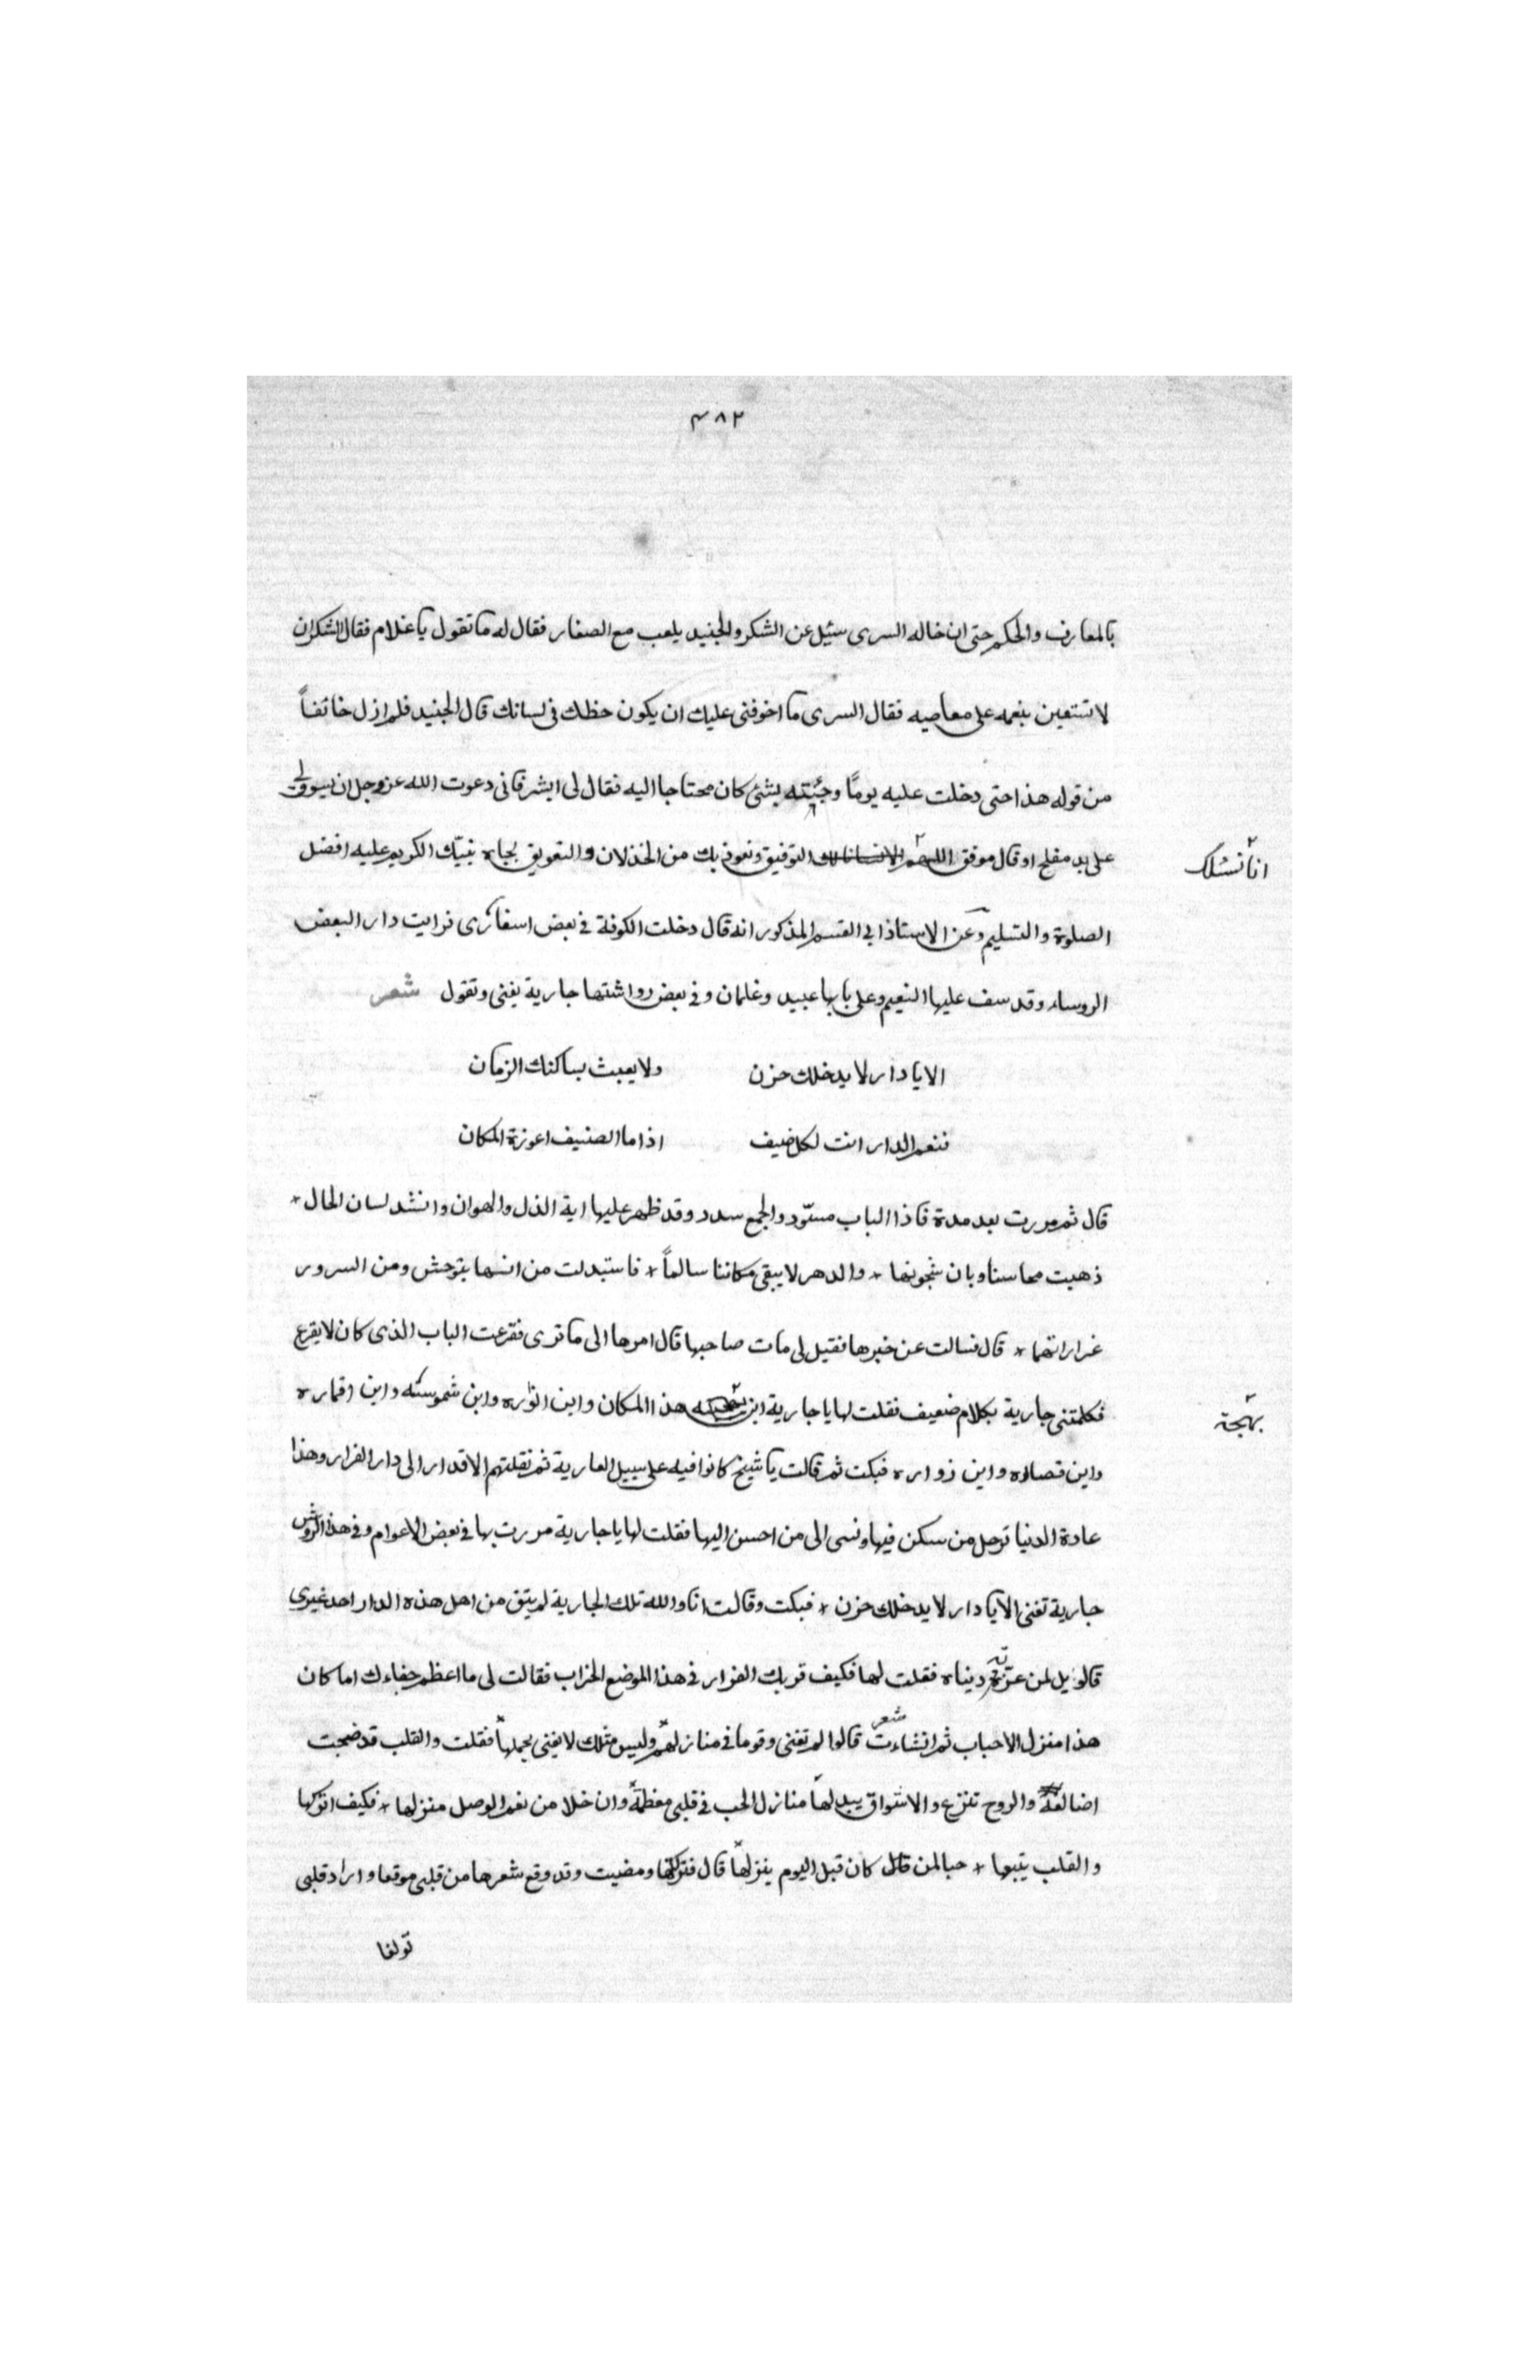 ٤٨٢
بالمعارف والحكم حتى ان خاله السرى سئيل عن الشكر والجنيد يلعب مع الصغار فقال له ما تقول يا غلام فقال الشكر ان
لا تستعين بنعمه على معاصيه فقال السرى ما اخوفنى عليك ان يكون حظك فى لسانك قال الجنيد فلم ازل خائفاً
من قوله هذا حتى دخلت عليه يوماً وجئته بشئ كان محتاجا اليه فقال لى ابشر فانى دعوت الله عز وجل ان يسوق لى
على يد مفلح او قال موفق اللهم التوفيق ونعوذ بك من الخذلان والتعويق بجاه نبيّك الكريم عليه افضل
انا نسئلك
الصلوة والتسليم وعن الاستاذ ابى القسم المذكور انه قال دخلت الكوفة فى بعض اسفارى فرايت دار البعض
الروساء وقد سف عليها النعيم وعلى بابها عبيد وغلمان وفى بعض رواشتها جارية يغنى وتقول شعر
الا يا دار لا يدخلك حزن ولا يعبث بساكنك الزمان
فنعم الدار انت لكل ضيف اذا ما الضيف اعوزة المكان
قال ثم مررت بعد مدة فاذا الباب مسّود والجمع سدد وقد ظهر عليها اية الذل والهوان وانشد لسان الحال *
ذهبت محاسنا وبان شجونها * والدهر لا يبقى مكاننا سالماً * فاستبدلت من انسها بتوحش ومن السرور
عزاراتها * قال فسالت عن خبرها فقيل لى مات صاحبها قال امرها الى ما ترى فقرعت الباب الذى كان لا يقرع
فكلمتنى جارية بكلام ضعيف فقلت لها يا جارية اين هذا المكان واين انواره واين شموسته واين اقماره
بهجة
واين قصاده واين زواره فبكت ثم قالت يا شيخ كانوا فيه على سبيل العارية ثم نقلتهم الاقدار الى دار القرار وهذا
عادة الدنيا ترحل من سكن فيها ونسى الى من احسن اليها فقلت لها يا جارية مررت بها فى بعض الاعوام وفى هذا الروشن
جارية تغنى الا يا دار لا يدخلك حزن * فبكت وقالت انا والله تلك الجارية لم يبق من اهل هذه الدار احد غيرى
فالويل لمن غرّته دنياه فقلت لها فكيف قربك القرار فى هذا الموضع الخراب فقالت لى ما اعظم جفاءك اما كان
هذا منزل الاحباب ثم انشاءت شعر قالوا لم تغنى وقوما فى منازلهم وليس مثلك لا يفنى بحملها فقلت والقلب قد ضجت
اضالعة والروح تنزع والاشواق يبدلها منازل الحب فى قلبى معظمة وان خلا من نعم الوصل منزلها * فكيف اتركها
والقلب يتبها * حبا لمن كان قبل اليوم ينزلها قال فتركتها ومضيت وقد وقع شعرها من قلبى موقعا وازداد قلبى
تولفا